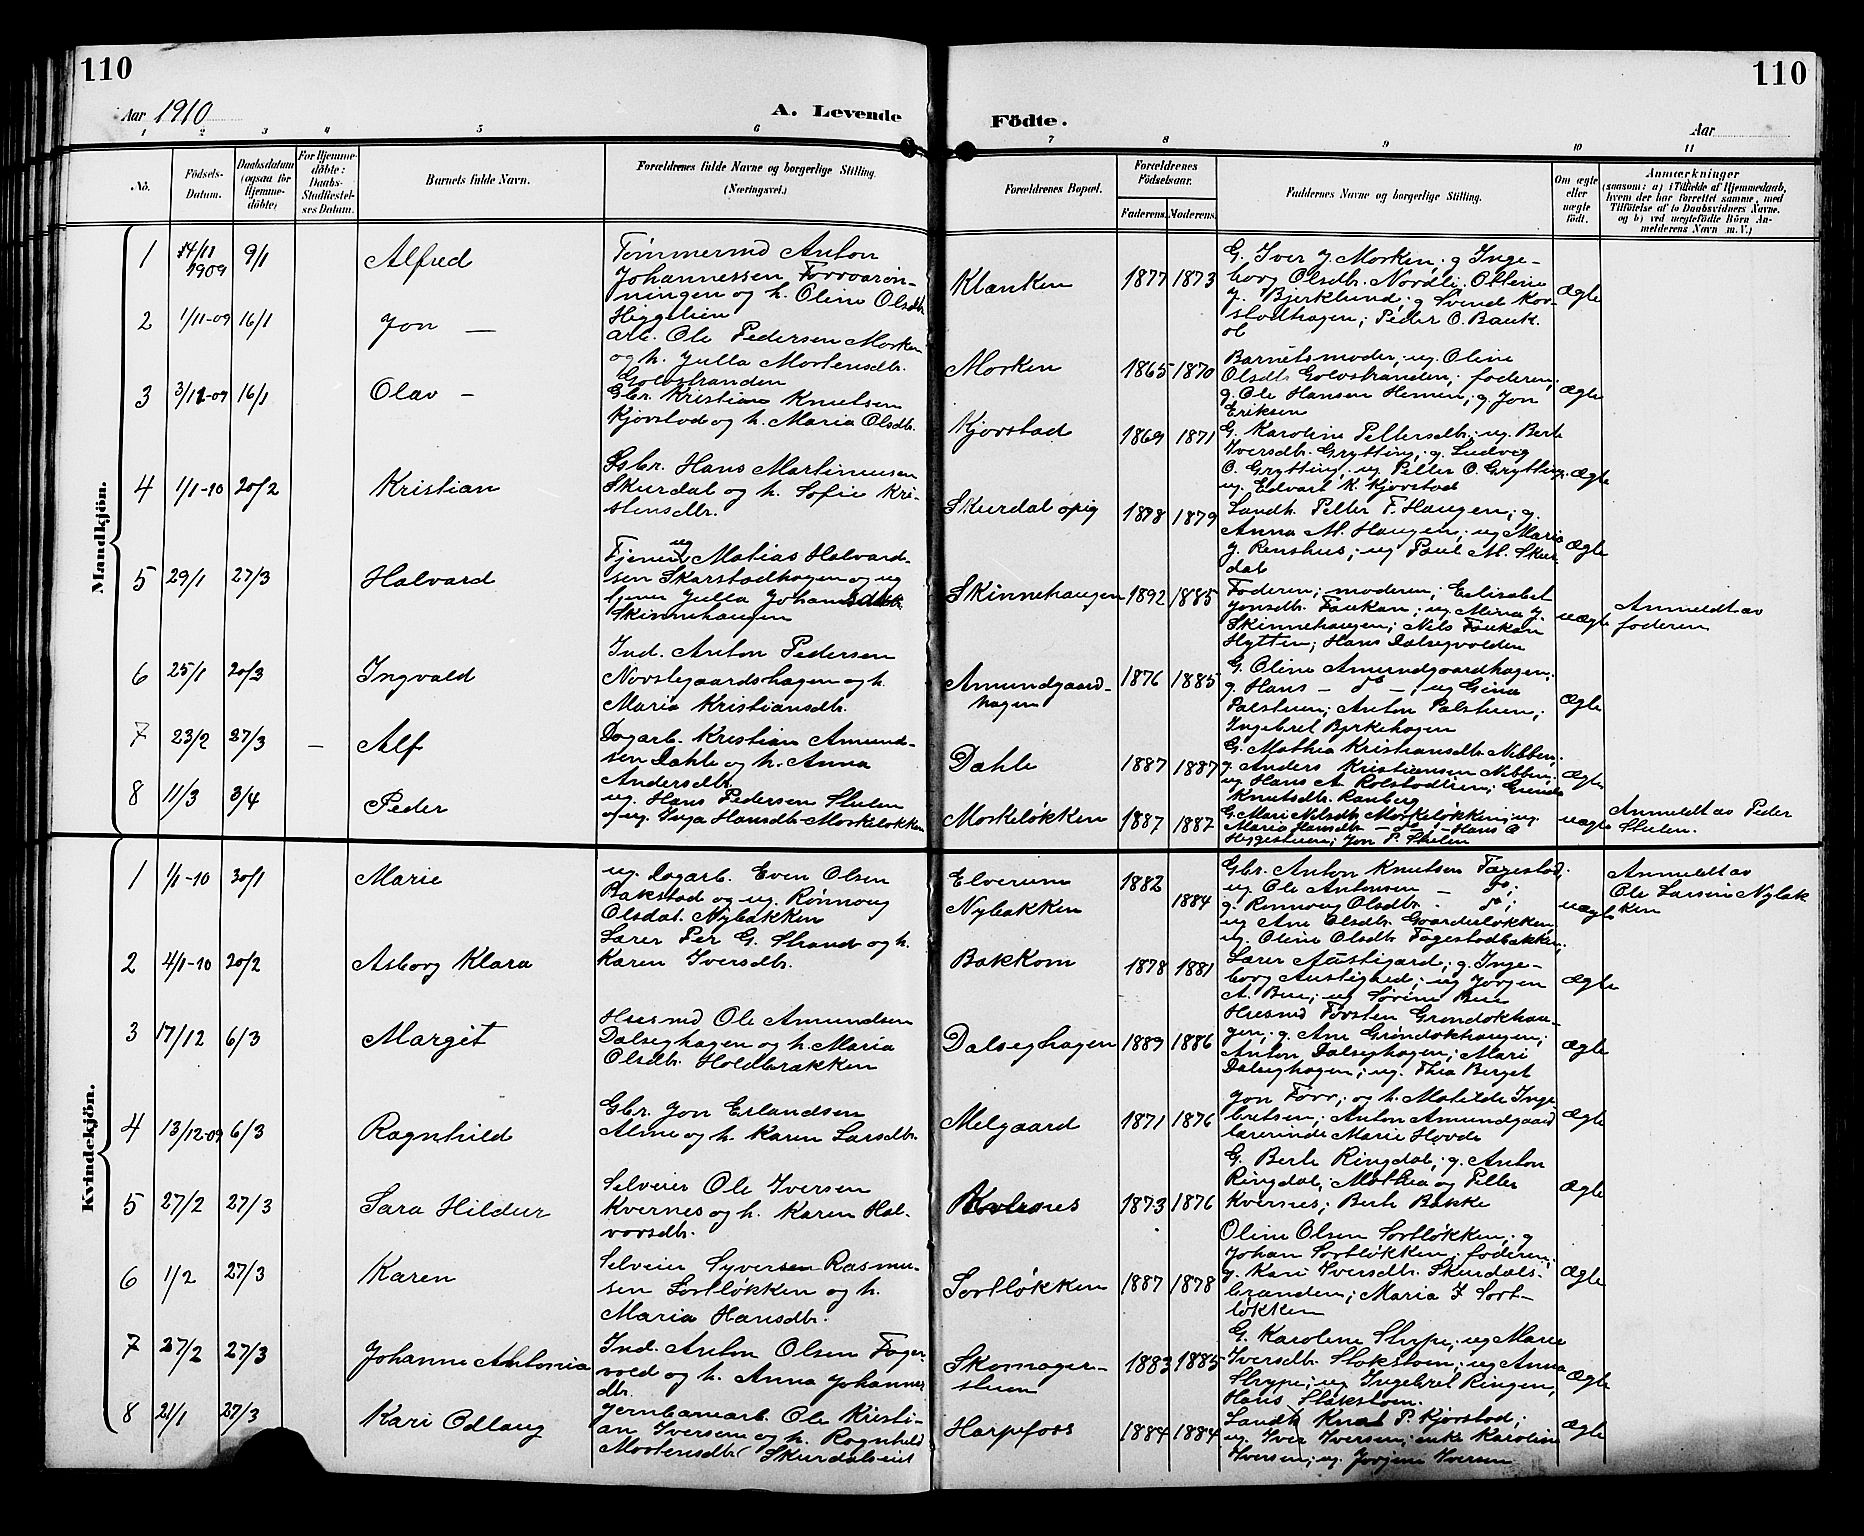 110
110
Aar 1910
A. Levende Födte.
Aar
1 2 3 4 5 6 7 8 9 10 11
No.
Födsels-Datum.
Daabsdatum (ogsaa for Hjemmedöbte)
For Hjemmedöbte: Daabs-Stadfæstelses Datum.
Barnets fulde Navn.
Forældrenes fulde Navne og borgerlige Stilling. (Næringsvei.)
Forældrenes Bopæl.
Forældrenes Födselsaar.
Faderens. Moderens.
Faddernes Navne og borgerlige Stilling.
Om ægte eller uægte födt.
Anmærkninger
(saasom: a) i Tilfælde af Hjemmedaab,
hvem der har forrettet samme, med
Tilföielse af to Daabsvidners Navne,
og b) ved uegtefödte Börn An-
melderens Navn m. V.)
Mandkjön.
1 14/11 1909 9/1 Alfred
Tømmermd Anton
Johannessen Forvarøn-
ningen og h. Oline Olsdtr.
Heggelien
Klanken 1877 1873
G. Iver J Morken; g Inge-
borg Olsdtr. Nordli, Oline
J. Bjerklund; g Svend Kor-
stadhagen; Peder O. Bauk
ol
Ægte
2 1/11-09 16/1 Jon —
arb. Ole Pedersen Morken
og h. Julla Mortensdtr.
Golvstranden
Morken 1865 1870
Barnets moder; ug. Oline
Olsdtr Golvstranden; faderen;
g. Ole Hansen Hemen; g Jon
Eriksen
Ægte
3 3/12-09 16/1 Olav —
Gbr. Kristian Knutsen
Kjorstad og h. Maria Olsdtr.
Kjorstad 1869 1871
G. Karoline Pettersdtr; ug. Berte
Iversdtr. Grytting; g. Ludvig
O. Grytting; ug Petter O. Grytting;
ug. Edvart K. Kjorstad
Ægte
4 1/1-10 20/2 Kristian
Gbr. Hans Martinusen
Skurdal og h. Sofie Kri-
stensdtr.
Skurdal opig 1878 1879
Landh. Petter F. Haugen; g.
Anna M. Haugen; ug Maria
J. Renshus; ug Paul M. Skur-
dal
Ægte
5 29/1 27/3 Halvard
Tjener ug Matias Halvard-
sen Skarstadhagen og ug
tjener Julla Johansdtr.
Skinnehaugen
Skinnehaugen 1892 1885
Faderen; moderen; Eelisabet
Jonsdtr. Faukan; ug. Mina J.
Skinnehaugen; Nils Faukan
Hytten; Hans Dalsegvolden
uægte
Anmeldt av
faderen
6 25/1 20/3 Ingvald
Ind. Anton Pedersen
Novstegaardshagen og h.
Maria Kristiansdtr.
Amundgaard-
hagen
1876 1885
G. Oline Amundgaardhagen;
g. Hans — do —, ug Gina
Palstuen; Anton Palstuen;
Ingebret Byrkehagen
Ægte
7 23/2 27/3 — Alf
Dagarb. Kristian Amund-
sen Dahle og h. Anna
Andersdtr.
Dahle 1887 1887
G. Mathea Kristiansdtr. Nibben;
g Anders Kristiansen Nibben;
ug Hans A. Rolstadlien;
Knutsdtr. Ranberg
Ægte
8 11/3 3/4 Peder
ug. Hans Pedersen Stulen
og ug. Inga Hansdtr Moskeløkken
Moskeløkken 1887 1887
G. Mari Nilsdtr Moskeløkken; ug.
Maria Hansdtr — do —; Hans O
Heggestuen; Jon P. Stulen
uægte
Anmeldt av Peder
Stulen.
Kvindekjön.
1 1/1-10 30/1 Marie
ug. Dagarb. Even Olsen
Bakstad og ug. Rønnoug
Olsdat. Nybakken
Elverum 1882
Nybakken 1884
Gbr. Anton Knutsen Fagestad;
ug Ole Antonsen — do;
g. Rønnoug Olsdtr. - do;
ug Ane Olsdtr. Gaarderløkken,
ug. Oline Olsdtr Fagestadbakken;
uægte
Anmeldt av
Ole Larsen Nybak
ken
2 4/1-10 20/2 Asborg Klara
Lærer Per G. Strand og h.
Karen Iversdtr.
Bakkom 1878 1881
Lærer Austigard; g. Inge-
borg Austighed; ug Jørgen
A. Bere; ug Sørine Bere
Ægte
3 17/12 6/3 Margit
Husmd Ole Amundsen
Dalseghagen og h. Maria
Olsdtr. Holdbrækken
Dalseghagen 1889 1886
Husmd Torsten Grøndokhau-
gen; g. Ane Grøndokhaugen;
Anton Dalseghagen; Mari
Dalseghagen; ug. Thea Berget
Ægte
4 13/12-09 6/3 Ragnhild
Gbr. Jon Erlandsen
Alme og h. Karen Larsdtr.
Melgaard 1871 1876
Jon Forr; og h. Matilde Inge
bretsen; Anton Amundgaard
lærerinde Marie Hovde
Ægte
5 27/2 27/3 Sara Hildur
Selveier Ole Iversen
Kvernes og h. Karen Hal-
vorsdtr.
Kvernes 1873 1876
G. Berte Ringdal; g. Anton
Ringdal, Mathea og Petter
Kvernes; Berte Bakke
Ægte
6 1/2 27/3 Karen
Selveier Syversen Rasmu-
sen Sortløkken og h.
Maria Hansdtr.
Sortløkken 1887 1878
Oline Olsen Sortløkken; g
Johan Sortløkken; faderen;
g. Kari Iversdtr. Skurdals-
branden; Maria I Sort-
løkken
Ægte
7 27/2 27/3 Johanne Antonia
Ind. Anton Olsen Fager-
vold og h. Anna Johannes
dtr.
Skomager-
stuen
1883 1885
G. Karoline Strype; ug Marie
Iversdtr. Stokstoen; ug Anna
Strype; ug Ingebret Ringen;
Hans Stokstoen.
Ægte
8 21/1 27/3 Kari Odlaug
Jernbanearb. Ole Kristi-
an Iversen og h. Ragnhild
Mortensdtr. Skurdalseiet
Harpefoss 1884 1884
Landh Knut P. Kjorstad;
ug. Iver Iversen; enke Karoline
Iversen; ug. Jorgine Iversen
Ægte